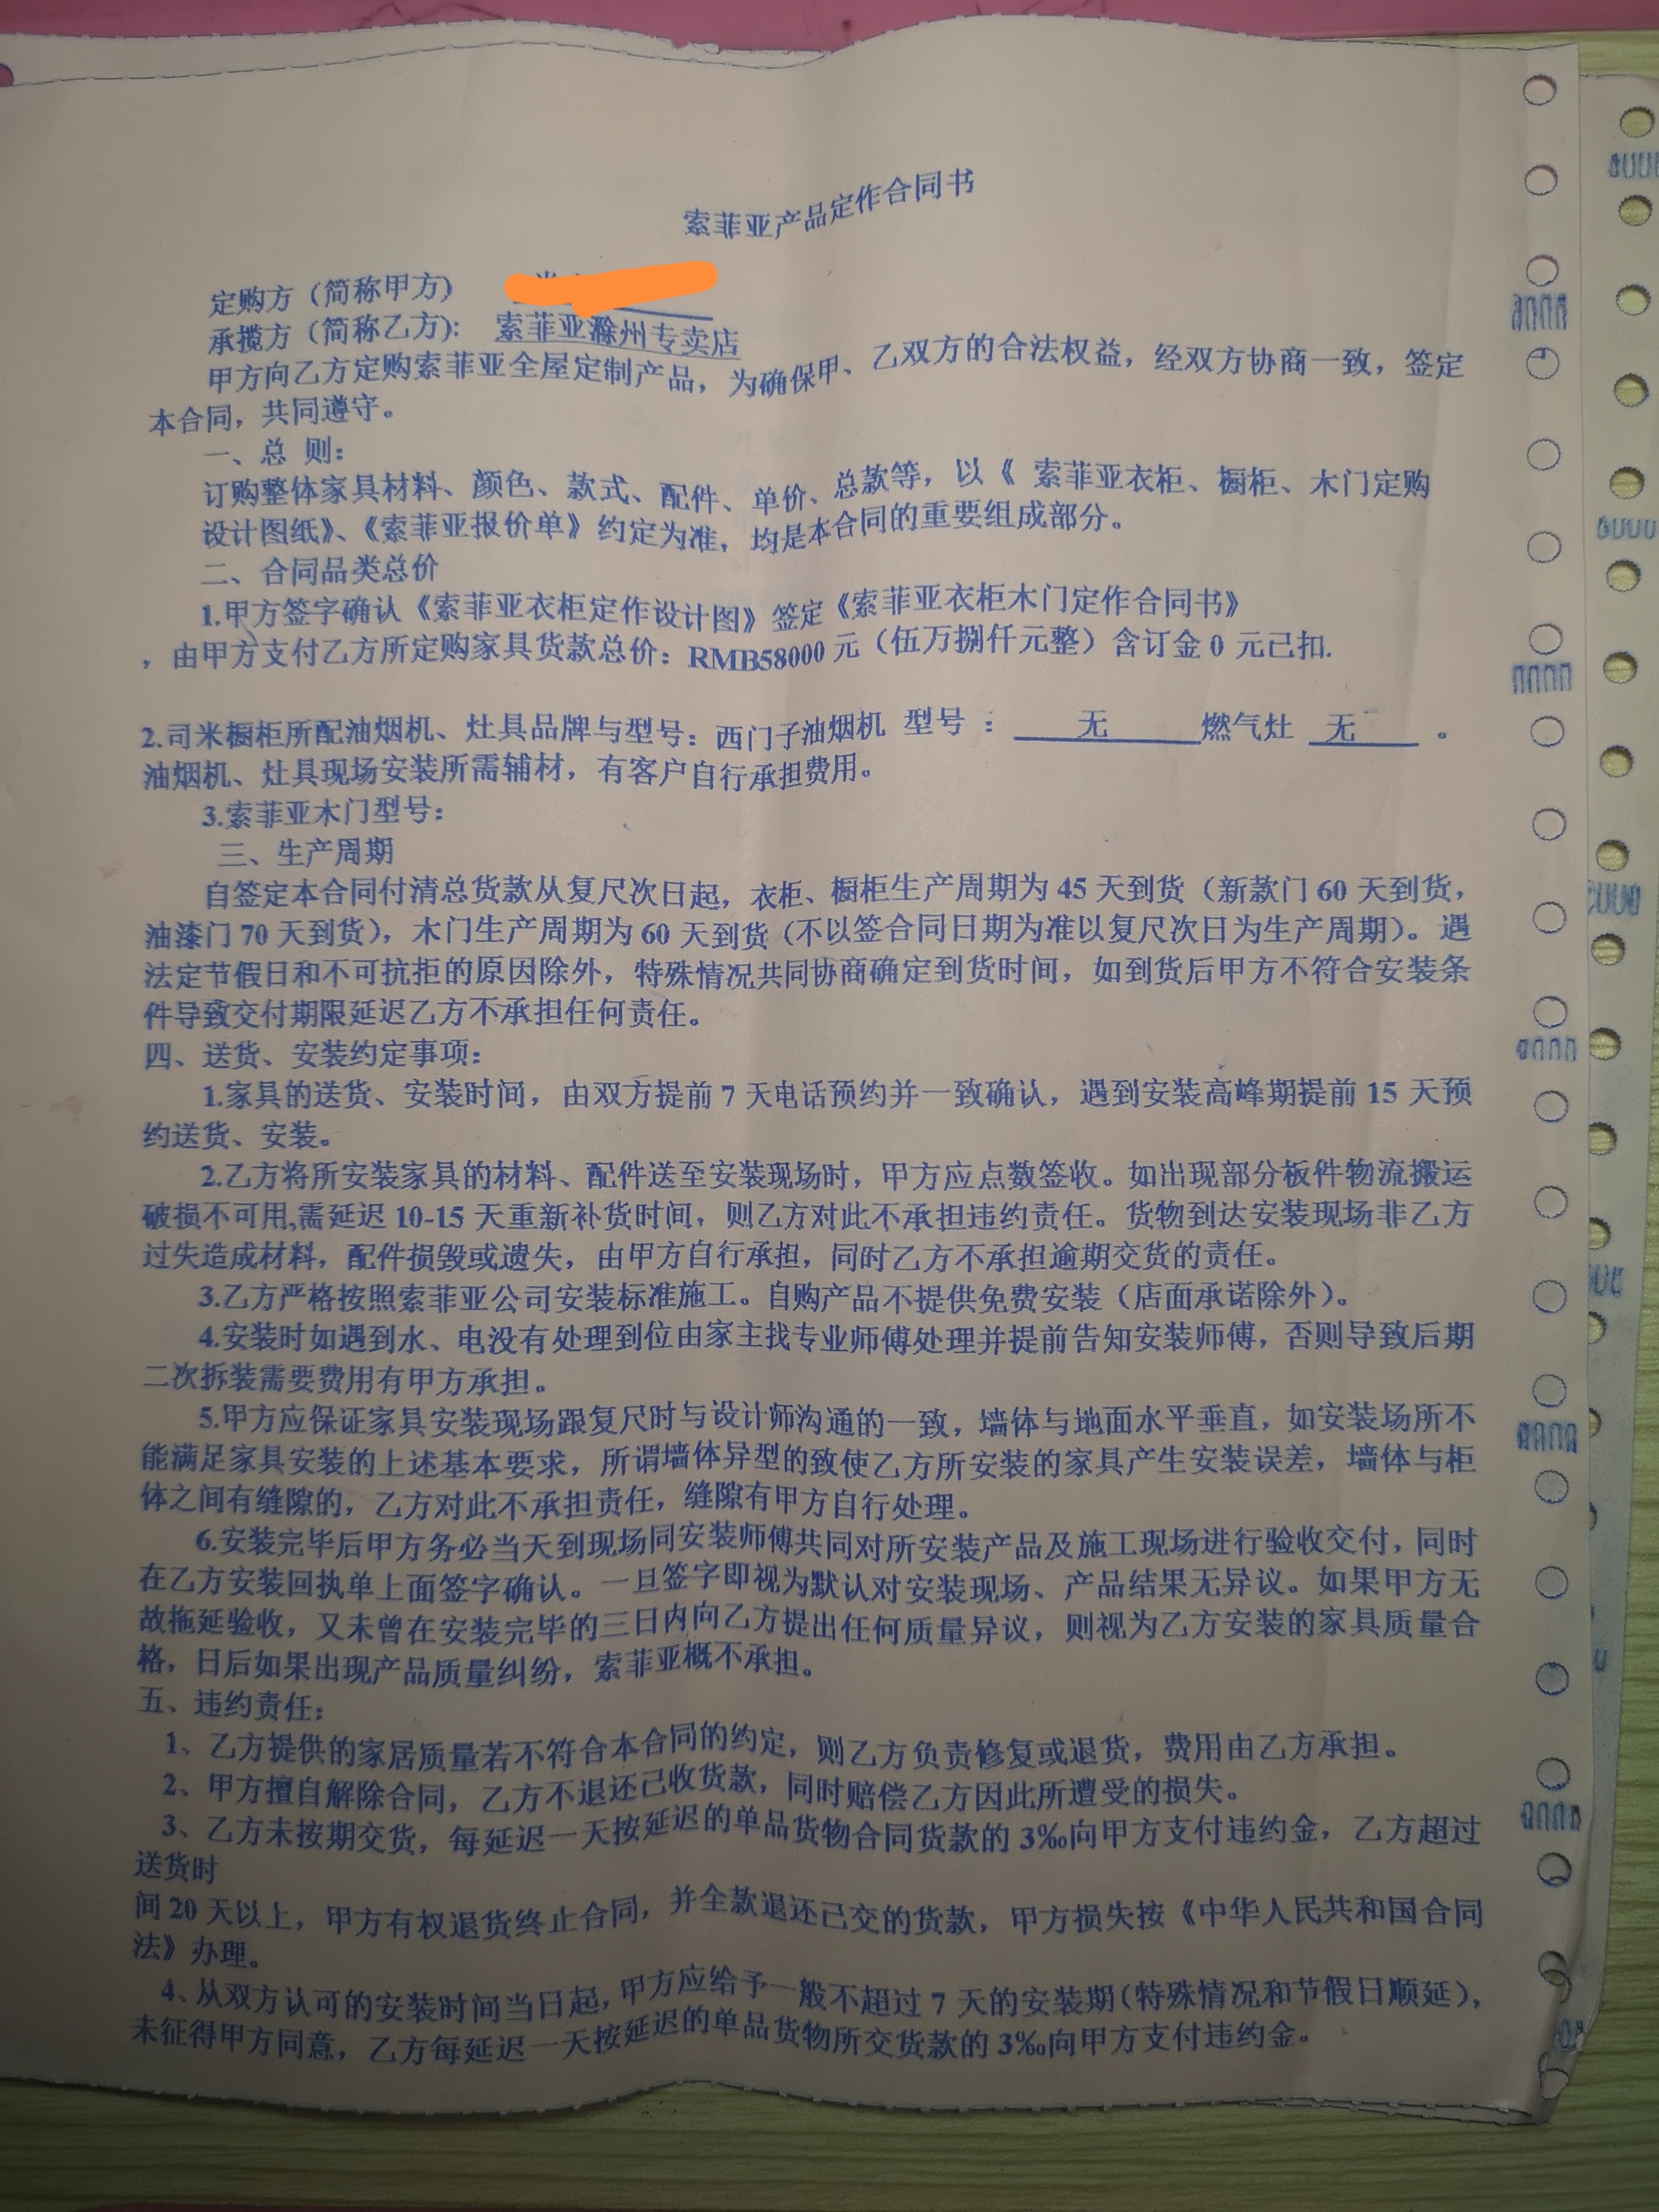 索菲亚产品定作合同书
定购方（简称甲方）
承揽方（简称乙方）： 索菲亚滁州专卖店
甲方向乙方定购索菲亚全屋定制产品，为确保甲、乙双方的合法权益，经双方协商一致，签定
本合同，共同遵守。
一、总 则：
订购整体家具材料、颜色、款式、配件、单价、总款等，以《 索菲亚衣柜、橱柜、木门定购
设计图纸》、《索菲亚报价单》约定为准，均是本合同的重要组成部分。
二、合同品类总价
1.甲方签字确认《索菲亚衣柜定作设计图》签定《索菲亚衣柜木门定作合同书》
，由甲方支付乙方所定购家具货款总价：RMB58000 元（伍万捌仟元整）含订金 0 元已扣.
2.司米橱柜所配油烟机、灶具品牌与型号：西门子油烟机 型号 ： 无 燃气灶 无 。
油烟机、灶具现场安装所需辅材，有客户自行承担费用。
3.索菲亚木门型号：
三、生产周期
自签定本合同付清总货款从复尺次日起，衣柜、橱柜生产周期为 45 天到货（新款门 60 天到货，
油漆门 70 天到货），木门生产周期为 60 天到货（不以签合同日期为准以复尺次日为生产周期）。遇
法定节假日和不可抗拒的原因除外，特殊情况共同协商确定到货时间，如到货后甲方不符合安装条
件导致交付期限延迟乙方不承担任何责任。
四、送货、安装约定事项：
1.家具的送货、安装时间，由双方提前 7 天电话预约并一致确认，遇到安装高峰期提前 15 天预
约送货、安装。
2.乙方将所安装家具的材料、配件送至安装现场时，甲方应点数签收。如出现部分板件物流搬运
破损不可用,需延迟 10-15 天重新补货时间，则乙方对此不承担违约责任。货物到达安装现场非乙方
过失造成材料，配件损毁或遗失，由甲方自行承担，同时乙方不承担逾期交货的责任。
3.乙方严格按照索菲亚公司安装标准施工。自购产品不提供免费安装（店面承诺除外）。
4.安装时如遇到水、电没有处理到位由家主找专业师傅处理并提前告知安装师傅，否则导致后期
二次拆装需要费用有甲方承担。
5.甲方应保证家具安装现场跟复尺时与设计师沟通的一致，墙体与地面水平垂直，如安装场所不
能满足家具安装的上述基本要求，所谓墙体异型的致使乙方所安装的家具产生安装误差，墙体与柜
体之间有缝隙的，乙方对此不承担责任，缝隙有甲方自行处理。
6.安装完毕后甲方务必当天到现场同安装师傅共同对所安装产品及施工现场进行验收交付，同时
在乙方安装回执单上面签字确认。一旦签字即视为默认对安装现场、产品结果无异议。如果甲方无
故拖延验收，又未曾在安装完毕的三日内向乙方提出任何质量异议，则视为乙方安装的家具质量合
格，日后如果出现产品质量纠纷，索菲亚概不承担。
五、违约责任：
1、乙方提供的家居质量若不符合本合同的约定，则乙方负责修复或退货，费用由乙方承担。
2、甲方擅自解除合同，乙方不退还已收货款，同时赔偿乙方因此所遭受的损失。
3、乙方未按期交货，每延迟一天按延迟的单品货物合同货款的 3‰向甲方支付违约金，乙方超过
送货时
间 20 天以上，甲方有权退货终止合同，并全款退还已交的货款，甲方损失按《中华人民共和国合同
法》办理。
4、从双方认可的安装时间当日起，甲方应给予一般不超过 7 天的安装期（特殊情况和节假日顺延），
未征得甲方同意，乙方每延迟一天按延迟的单品货物所交货款的 3‰向甲方支付违约金。